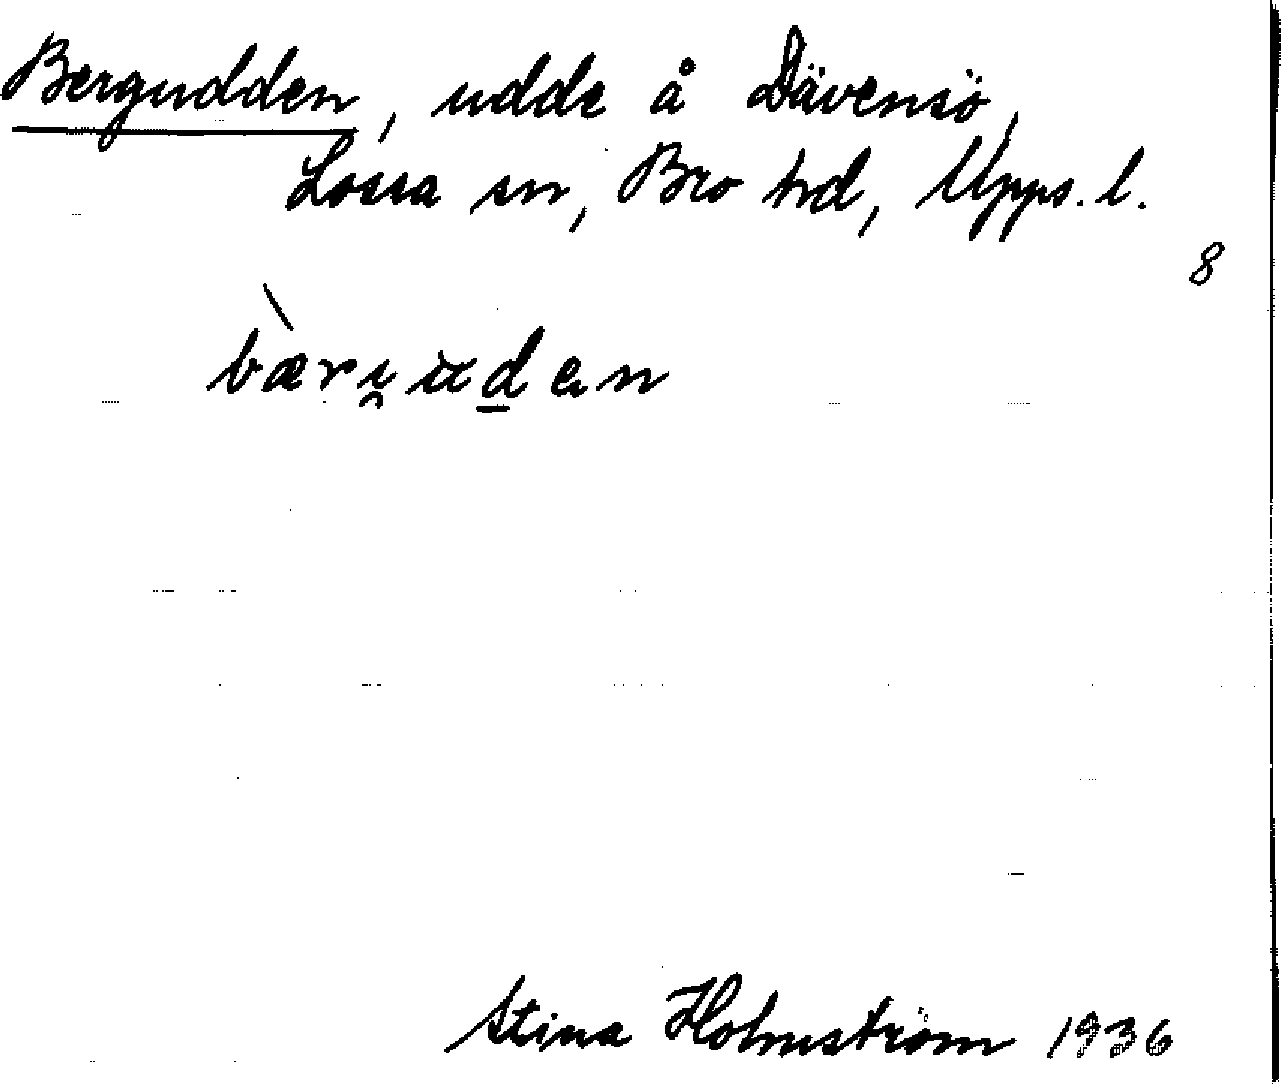 Bergudden, udde å Dävensö,
Lossa sn, Bro hd, Upps. l.
8
bæri̯ud̲en
Stina Holmström 1936